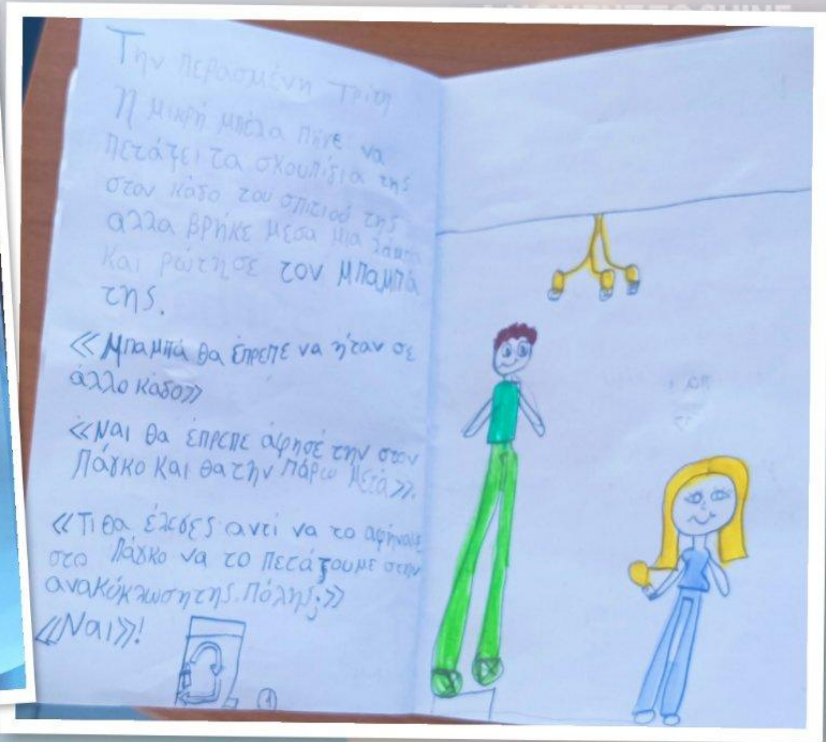 Την περασμένη Τρίτη
Η μικρή μπέλα πήγε να
πετάξει τα σκουπίδια της
στον κάδο του σπιτιού της
αλλα βρήκε μέσα μια λάμπα
και ρώτησε τον μπαμπά
της.
«Μπαμπά θα έπρεπε να ήταν σε
άλλο κάδο»
«Ναι θα έπρεπε άφησέ την στον
Πάγκο και θα την πάρω μετά».
«Τι θα έλεγες αντί να το αφήναμε
στο Πάγκο να το πετάξουμε στην
ανακύκλωση της Πόλης;»
«Ναι»!
1